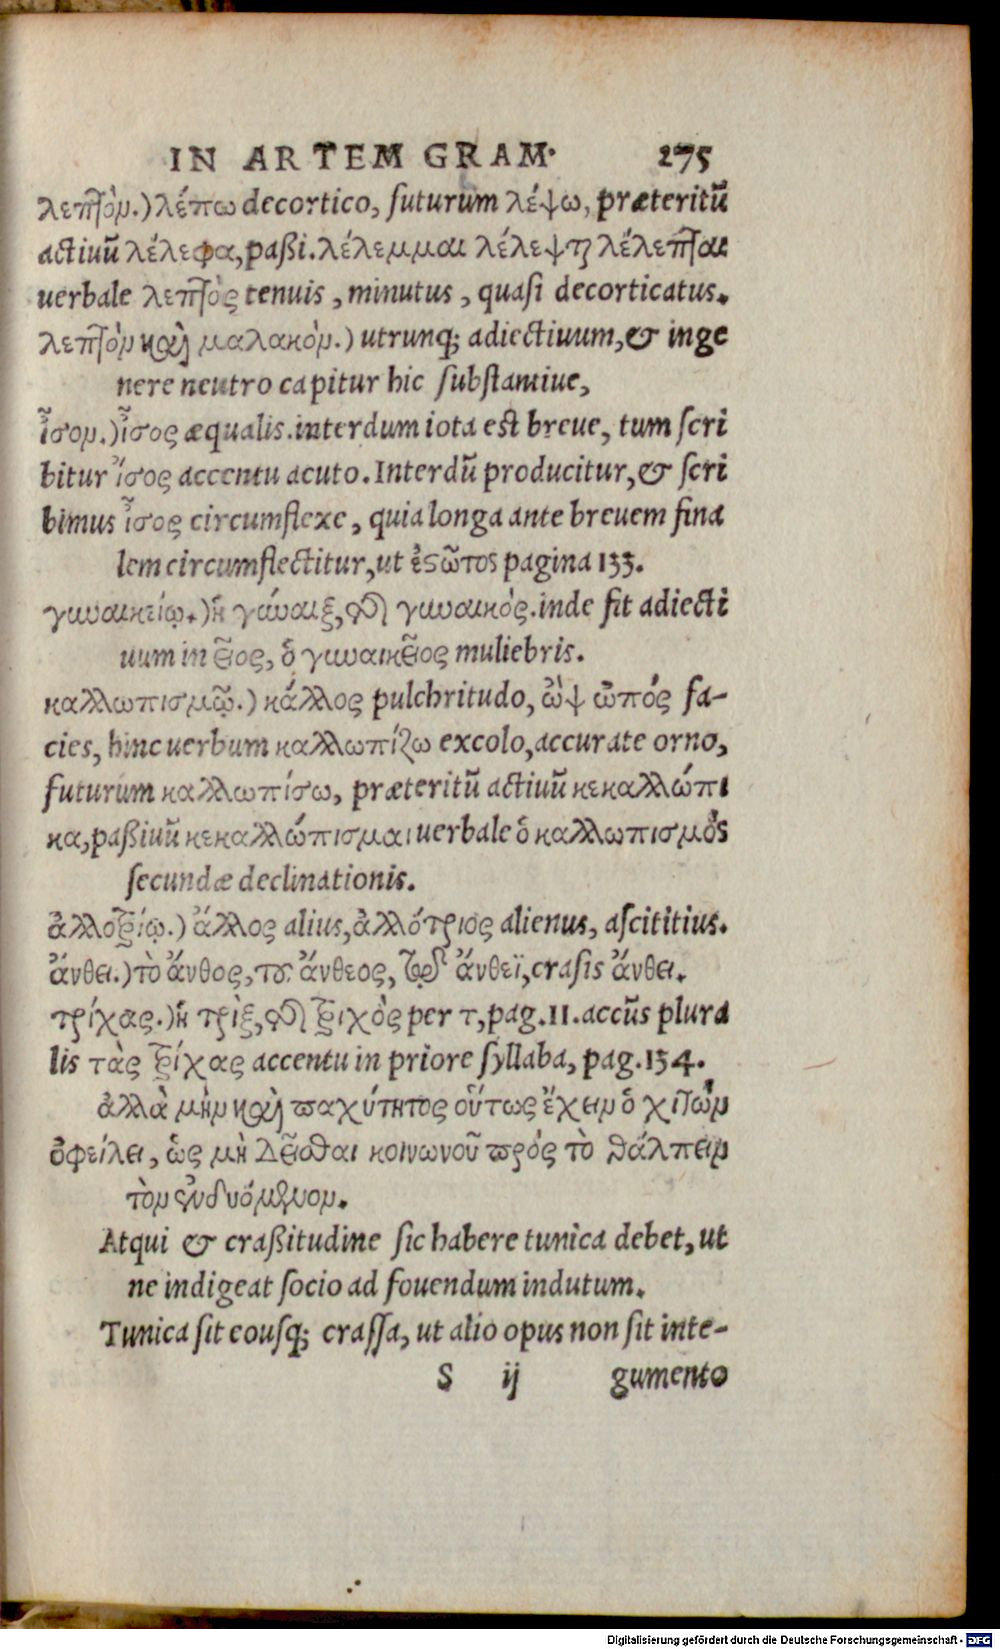 IN ARTEM GRAM. 275
λεπτὸν.) λέπω decortico, futurum λέψω, præteritũ
actiuũ λέλεφα, paßi. λέλεμμαι λέλεψαι λέλεπται
uerbale λεπτὸς tenuis, minutus, quasi decorticatus.
λεπτὸν καὶ μαλακὸν.) utrunq; adiectiuum, & in ge
nere neutro capitur hic substantiue,
ἶσον.) ἶσος æqualis. interdum iota est breue, tum scri
bitur ἴσος accentu acuto. Interdũ producitur, & scri
bimus ἶσος circumflexe, quia longa ante breuem fina
lem circumflectitur, ut ἐστῶτος pagina 133.
γυναικείῳ.) ἡ γύναιξ, τῆς γυναικός. inde fit adiecti
uum in εῖος, ὁ γυναικεῖος muliebris.
καλλωπισμῷ.) κάλλος pulchritudo, ὢψ ὠπός fa-
cies, hinc uerbum καλλωπίζω excolo, accurate orno,
futurum καλλωπίσω, præteritũ actiuũ κεκαλλώπι
κα, paßiuũ κεκαλλώπισμαι uerbale ὁ καλλωπισμός
secundæ declinationis.
ἀλλοτρίῳ.) ἄλλος alius, ἀλλότριος alienus, ascititius.
ἄνθει.) τὸ ἄνθος, τοῦ ἄνθεος, τῷ ἄνθεϊ, crasis ἄνθει.
τρίχας.) ἡ τρὶξ, τῆς τριχὸς per τ, pag. 11. accũs plura
lis τὰς τρίχας accentu in priore syllaba, pag. 134.
ἀλλὰ μὴν καὶ παχύτητος οὕτως ἔχειν ὁ χιτὼν
ὀφείλει, ὡς μὴ δεῖσθαι κοινωνοῦ πρός τὸ θάλπειν
τὸν ἐνδυόμενον.
Atqui & craßitudine sic habere tunica debet, ut
ne indigeat socio ad fouendum indutum.
Tunica sit eousq; crassa, ut alio opus non sit inte-
S ij gumento
Digitalisierung gefördert durch die Deutsche Forschungsgemeinschaft - DFG